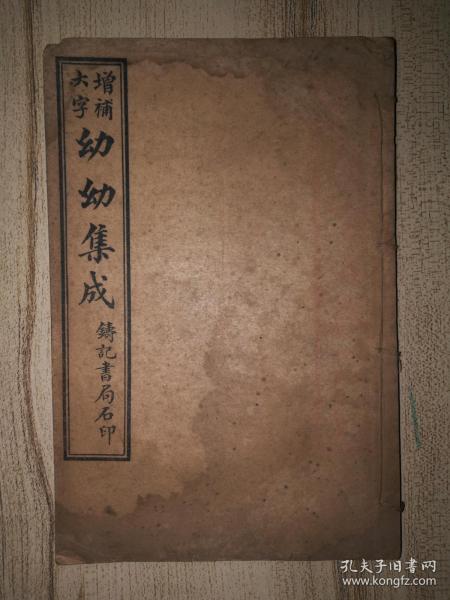 增補
大字
幼幼集成
鑄記書局石印
孔夫子旧书网
www.kongfz.com